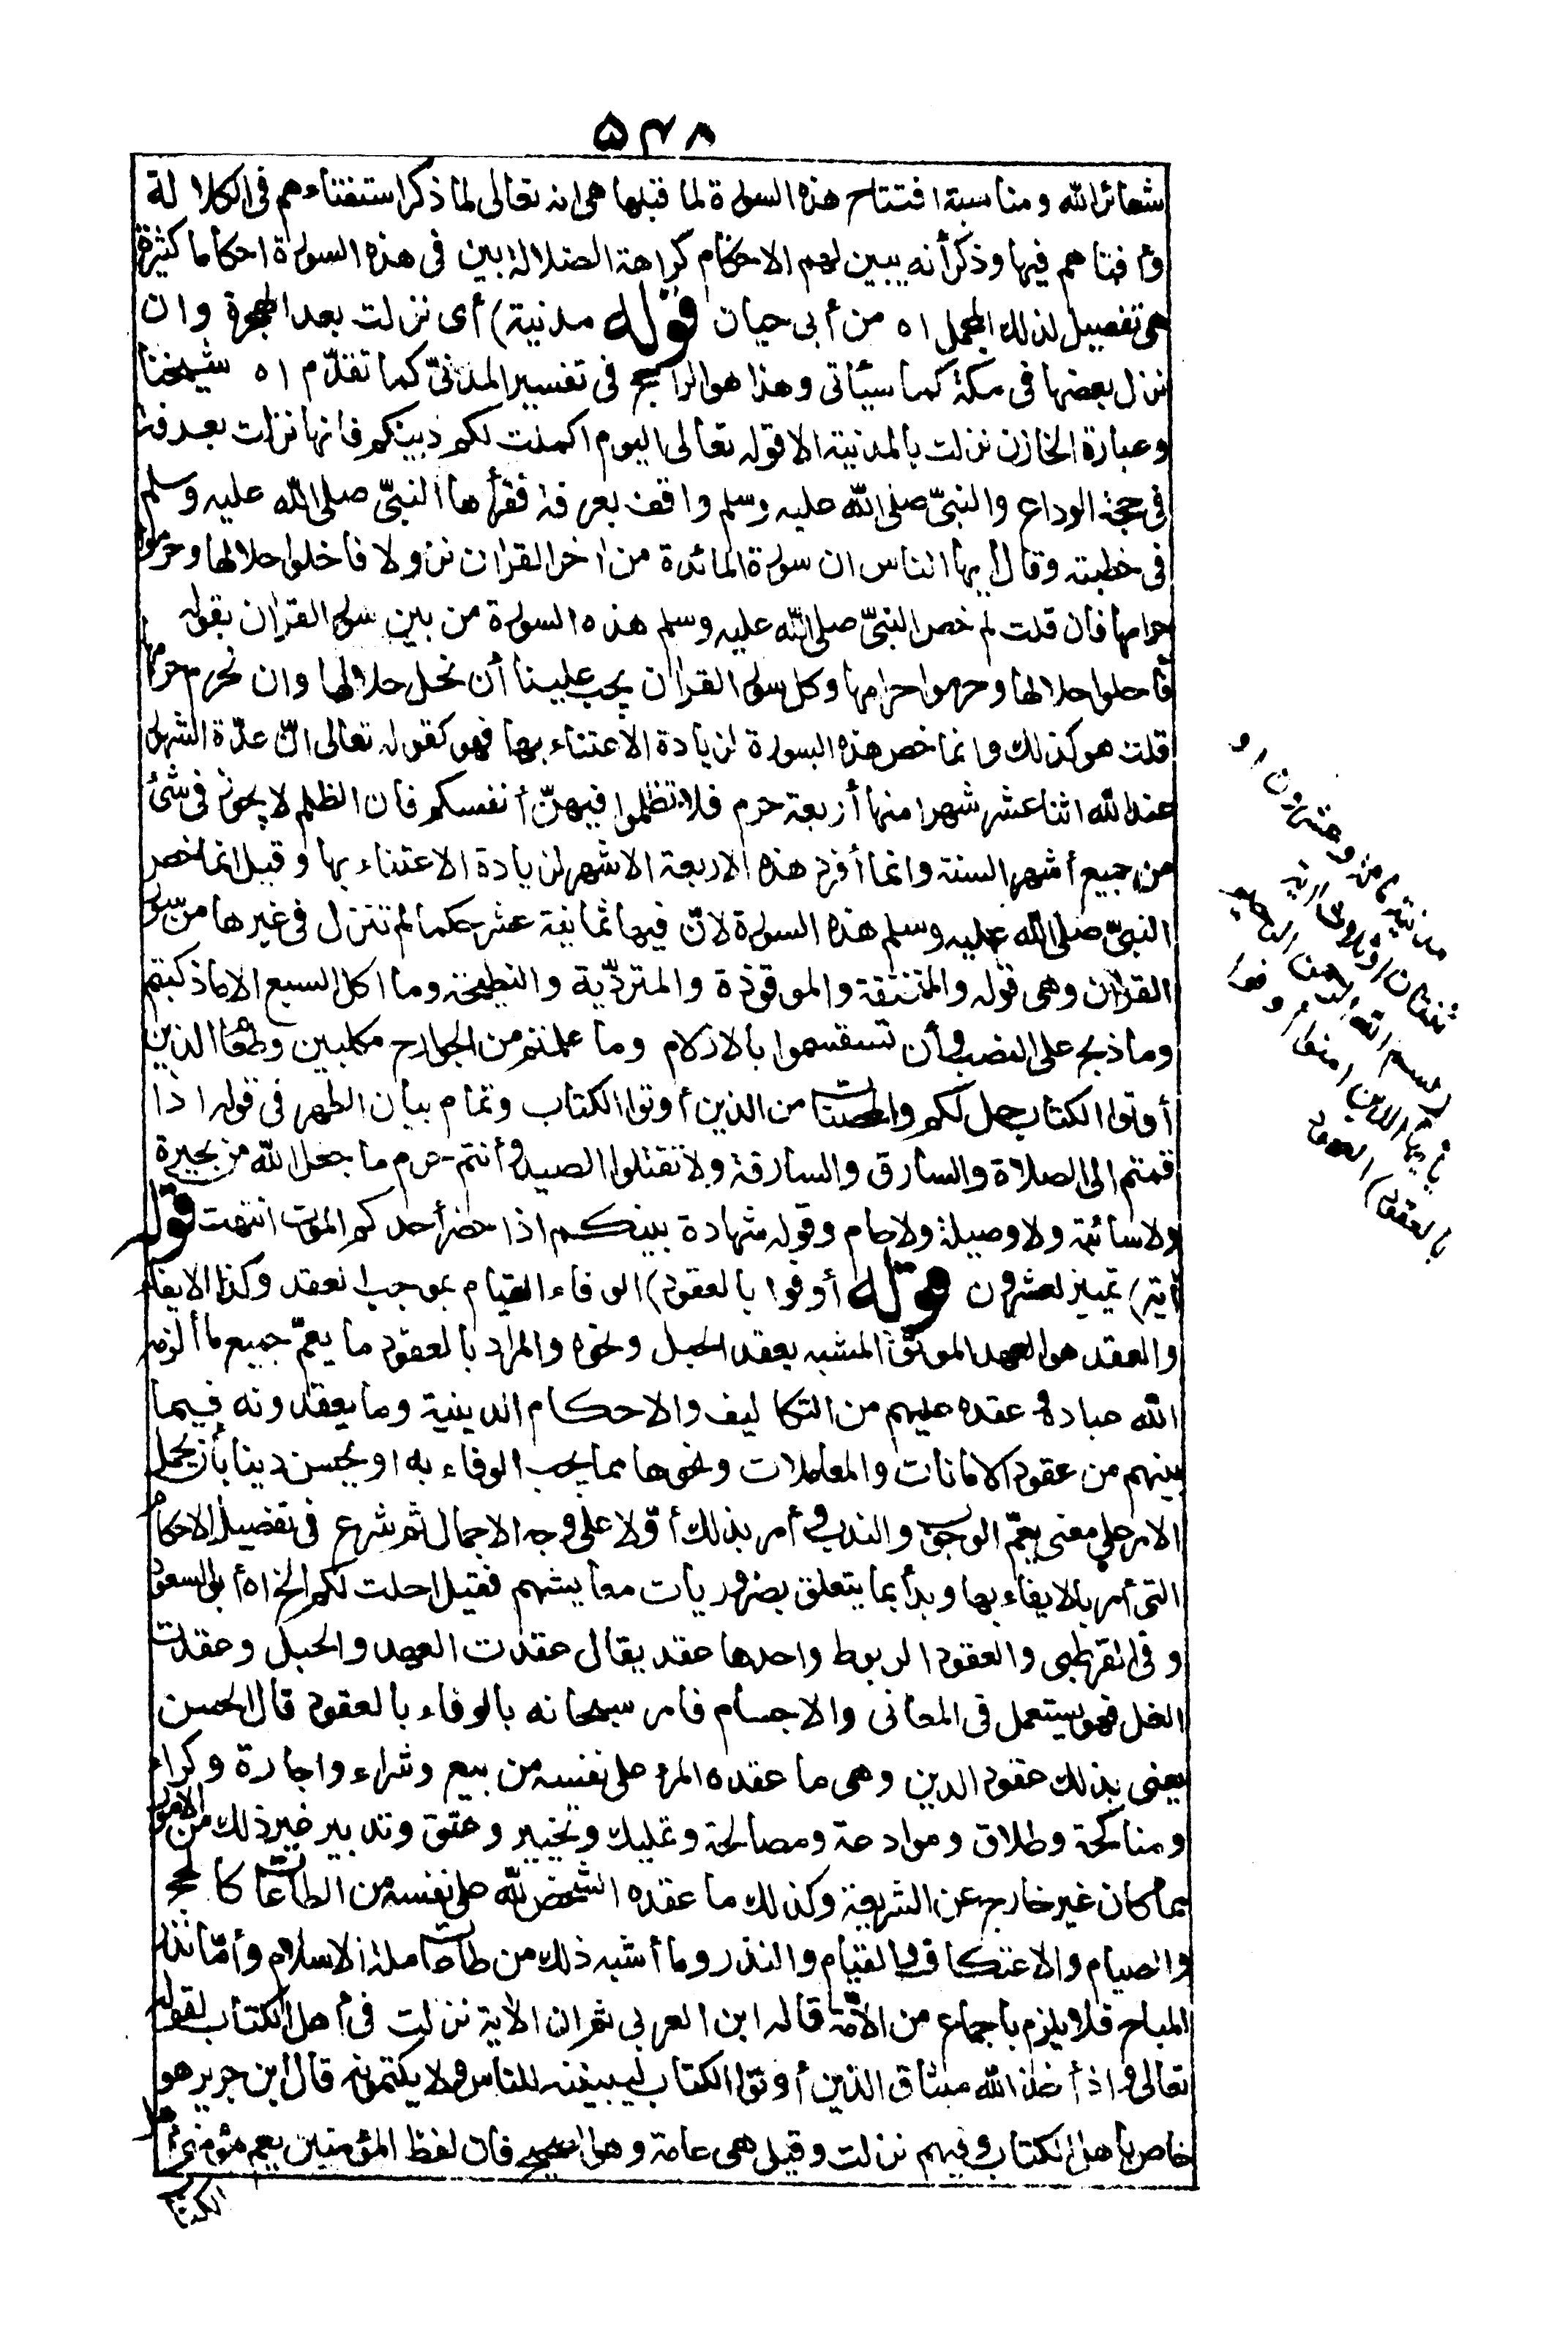 ۵۴۸
شعائر الله ومناسبة افتتاح هذه السورة لما قبلها هى انه تعالى لما ذكر استفتاءهم فى الكلالة
وأفتاهم فيها وذكر أنه يبين لهم الاحكام كراهة الضلالة بين فى هذه السورة احكاما كثيرة
هى تفصيل لذلك المجمل اه من أبى حيان قوله مدنية) أى نزلت بعد الهجرة وان
نزل بعضها فى مكة كما سيأتى وهذا هو الراجح فى تفسير المدنىّ كما تقدّم اه شيخنا
وعبارة الخازن نزلت بالمدنية الا قوله تعالى اليوم اكملت لكم دينكم فانها نزلت بعرفة
فى حجة الوداع والنبىّ صلى الله عليه وسلم واقف بعرفة فقرأها النبىّ صلى الله عليه وسلم
فى خطبته وقال أيها الناس ان سورة المائدة من اخر القران نزولا فاحلوا حلالها وحرموا
حرامها فان قلت لم خص النبىّ صلى الله عليه وسلم هذه السورة من بين سور القران بقوله
فأحلوا حلالها وحرموا حرامها وكل سور القران يجب علينا أن نحل حلالها وان نحرم حرامها
قلت هو كذلك وانما خص هذه السورة لزيادة الاعتناء بها فهو كقوله تعالى انّ عدّة الشهور
عند الله اثنا عشر شهرا منها أربعة حرم فلا تظلموا فيهنّ أنفسكم فان الظلم لا يجوز فى شئ
من جميع أشهر السنة وانما أفرد هذه الاربعة الاشهر لزيادة الاعتناء بها وقيل انما خص
النبىّ صلى الله عليه وسلم هذه السورة لانّ فيها ثمانية عشر حكما لم تنزل فى غيرها من سور
القران وهى قوله والمنخنقة والموقوذة والمتردّية والنطيحة وما اكل السبع الا ما ذكيتم
وما ذبح على النصب وأن تستقسموا بالازلام وما علمتم من الجوارح مكلبين وطعام الذين
أوتوا الكتاب حل لكم والمحصنات من الذين أوتوا الكتاب وتمام بيان الطهر فى قوله اذا
قمتم الى الصلاة والسارق والسارقة ولا تقتلوا الصيد وأنتم حرم ما جعل الله من بحيرة
ولا سائبة ولا وصيلة ولا حام وقوله شهادة بينكم اذا حضر أحدكم الموت انتهت قوله
آية) تمييز لعشرون قوله أوفوا بالعقود) الوفاء القيام بموجب العقد وكذا الايفاء
والعقد هو العهد الموثق المشبه بعقد الحبل ونحوه والمراد بالعقود ما يعمّ جميع ما ألزمه
الله عباده وعقده عليهم من التكاليف والاحكام الدينية وما يعقدونه فيما
بينهم من عقود الامانات والمعاملات ونحوها مما يجب الوفاء به او يحسن دينا بأن يحمل
الامر على معنى يعمّ الوجوب والندب وأمر بذلك أوّلا على وجه الاجمال ثم شرع فى تفصيل الاحكام
التى أمر بالايفاء بها وبدأ بما يتعلق بضروريات معايشهم فقيل احلت لكم الخ اه أبو السعود
وفى القرطبى والعقود الربوط واحدها عقد يقال عقدت العهد والحبل وعقدت
العسل فهو يستعمل فى المعانى والاجسام فامر سبحانه بالوفاء بالعقود قال الحسن
يعنى بذلك عقود الدين وهى ما عقده المرء على نفسه من بيع وشراء واجارة وكراء
ومناكحة وطلاق وموادعة ومصالحة وتمليك وتخيير وعتق وتدبير غير ذلك من الامور
مما كان غير خارج عن الشريعة وكذلك ما عقده الشخص لله على نفسه من الطاعات كالحج
والصيام والاعتكاف والقيام والنذر وما أشبه ذلك من طاعات ملة الاسلام وأمّا نذر
المباح فلا يلزم باجماع من الامّة قاله ابن العربى ثم ان الآية نزلت فى أهل الكتاب لقوله
تعالى واذ أخذ الله ميثاق الذين أوتوا الكتاب ليبيننه للناس ولا يكتمونه قال ابن جرير هو
خاص بأهل الكتاب وفيهم نزلت وقيل هى عامة وهو الصحيح فان لفظ المؤمنين يعم مؤمنى أهل
الكتاب
مدنية مائة وعشرون او
ثنتان او ثلاث اية
بسم الله الرحمن الرحيم
يأيها الذين امنوا أوفوا
بالعقود) العهود